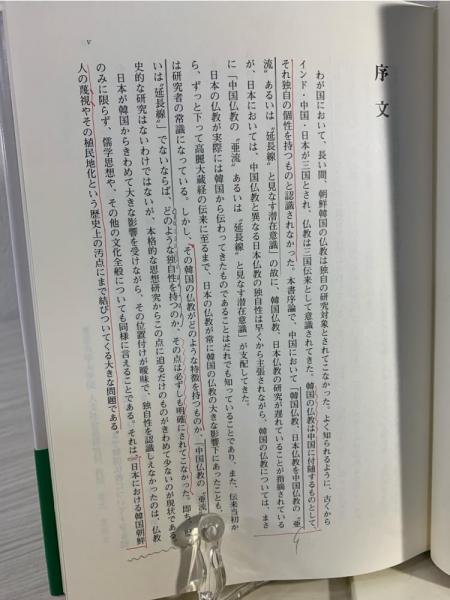 序文
わが国において、長い間、朝鮮韓国の仏教は独自の研究対象とされてこなかった。よく知られるように、古くから
インド・中国・日本が三国とされ、仏教は三国伝来として意識されてきた。韓国の仏教は中国に付随するものとして
それ独自の個性を持つものと認識されなかった。本書序論で、中国において「韓国仏教、日本仏教を中国仏教の〝亜
流〟あるいは〝延長線〟と見なす潜在意識」の故に、韓国仏教、日本仏教の研究が遅れていることが指摘されている
が、日本においては、中国仏教と異なる日本仏教の独自性は早くから主張されながら、韓国の仏教については、まさ
に「中国仏教の〝亜流〟あるいは〝延長線〟と見なす潜在意識」が支配してきた。
日本の仏教が実際には韓国から伝わってきたものであることはだれでも知っていることであり、また、伝来当初か
ら、ずっと下って高麗大蔵経の伝来に至るまで、日本の仏教が常に韓国の仏教の大きな影響下にあったことも、
は研究者の常識になっている。しかし、その韓国の仏教がどのような特徴を持つものか、「中国仏教の〝亜流
いは〝延長線〟」でないならば、どのような独自性を持つのか、その点は必ずしも明確にされてこなかった。即ち、
史的な研究はないわけではないが、本格的な思想研究からこの点に迫るだけのものがきわめて少ないのが現状である。
日本が韓国からきわめて大きな影響を受けながら、その位置付けが曖昧で、独自性を認識しえなかったのは、仏教
のみに限らず、儒学思想や、その他の文化全般についても同様に言えることである。それは、日本における韓国朝鮮
人の蔑視やその植民地化という歴史上の汚点にまで結びついてくる大きな問題である。
v